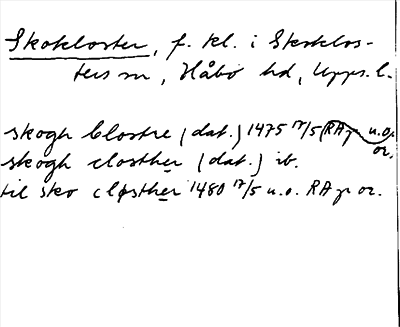 Skokloster, f. kl. i Skoklos-
ters sn, Håbo hd, Upps. l.
skogh clostre (dat.) 1475 17/5 RAp u.o. or.
skogh closther (dat.) ib.
til sko cløsther 1480 17/5 u.o. RAp or.